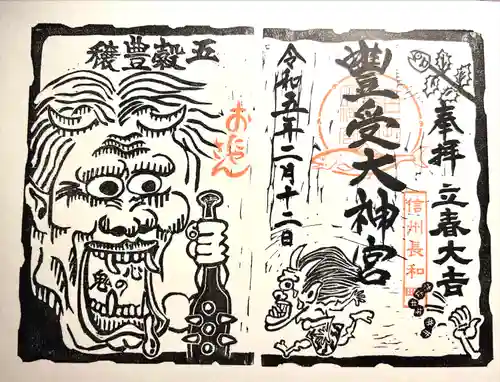 奉拝 立春大吉
豊受大神宮
信州長和町
令和五年二月十二日
五穀豊穣
おにやん
心の鬼